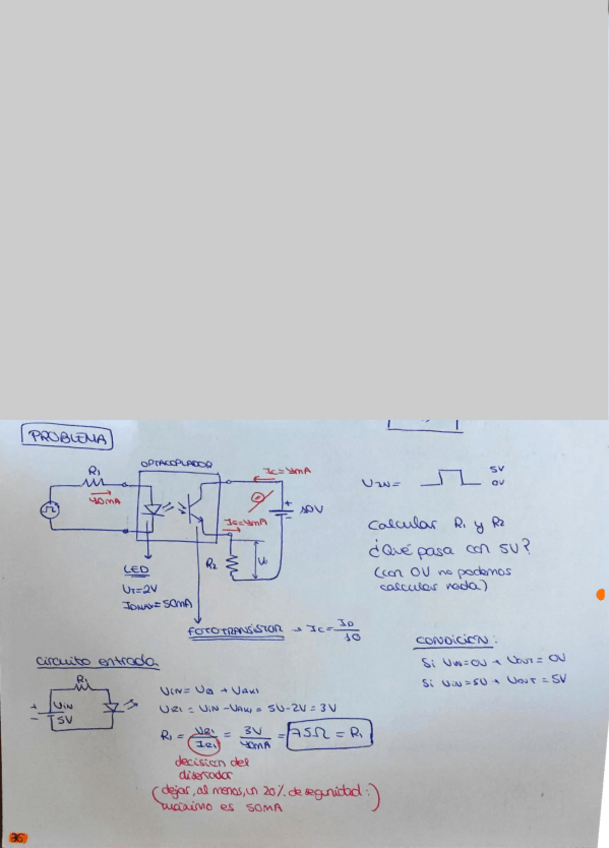 PROBLEMA
OPTACOPLADOR
R1
40mA
Ic=4mA
Ic=4mA
+
-
10V
R2
Vo
LED
VT=2V
IDMAX=50mA
FOTOTRANSISTOR → Ic = ID/10
VIN=
5V
0V
Calcular R1 y R2
¿Qué pasa con 5V?
(con 0V no podemos
calcular nada)
CONDICIÓN:
Si VIN=0V → VOUT = 0V
Si VIN=5V → VOUT = 5V
Circuito entrada
R1
+
-
VIN
5V
VIN = VR1 + VAK1
VR1 = VIN - VAK1 = 5V-2V = 3V
R1 = VR1/IR1 = 3V/40mA = 75Ω = R1
decisión del
diseñador
(dejar, al menos, un 20% de seguridad:
máximo es 50mA)
36